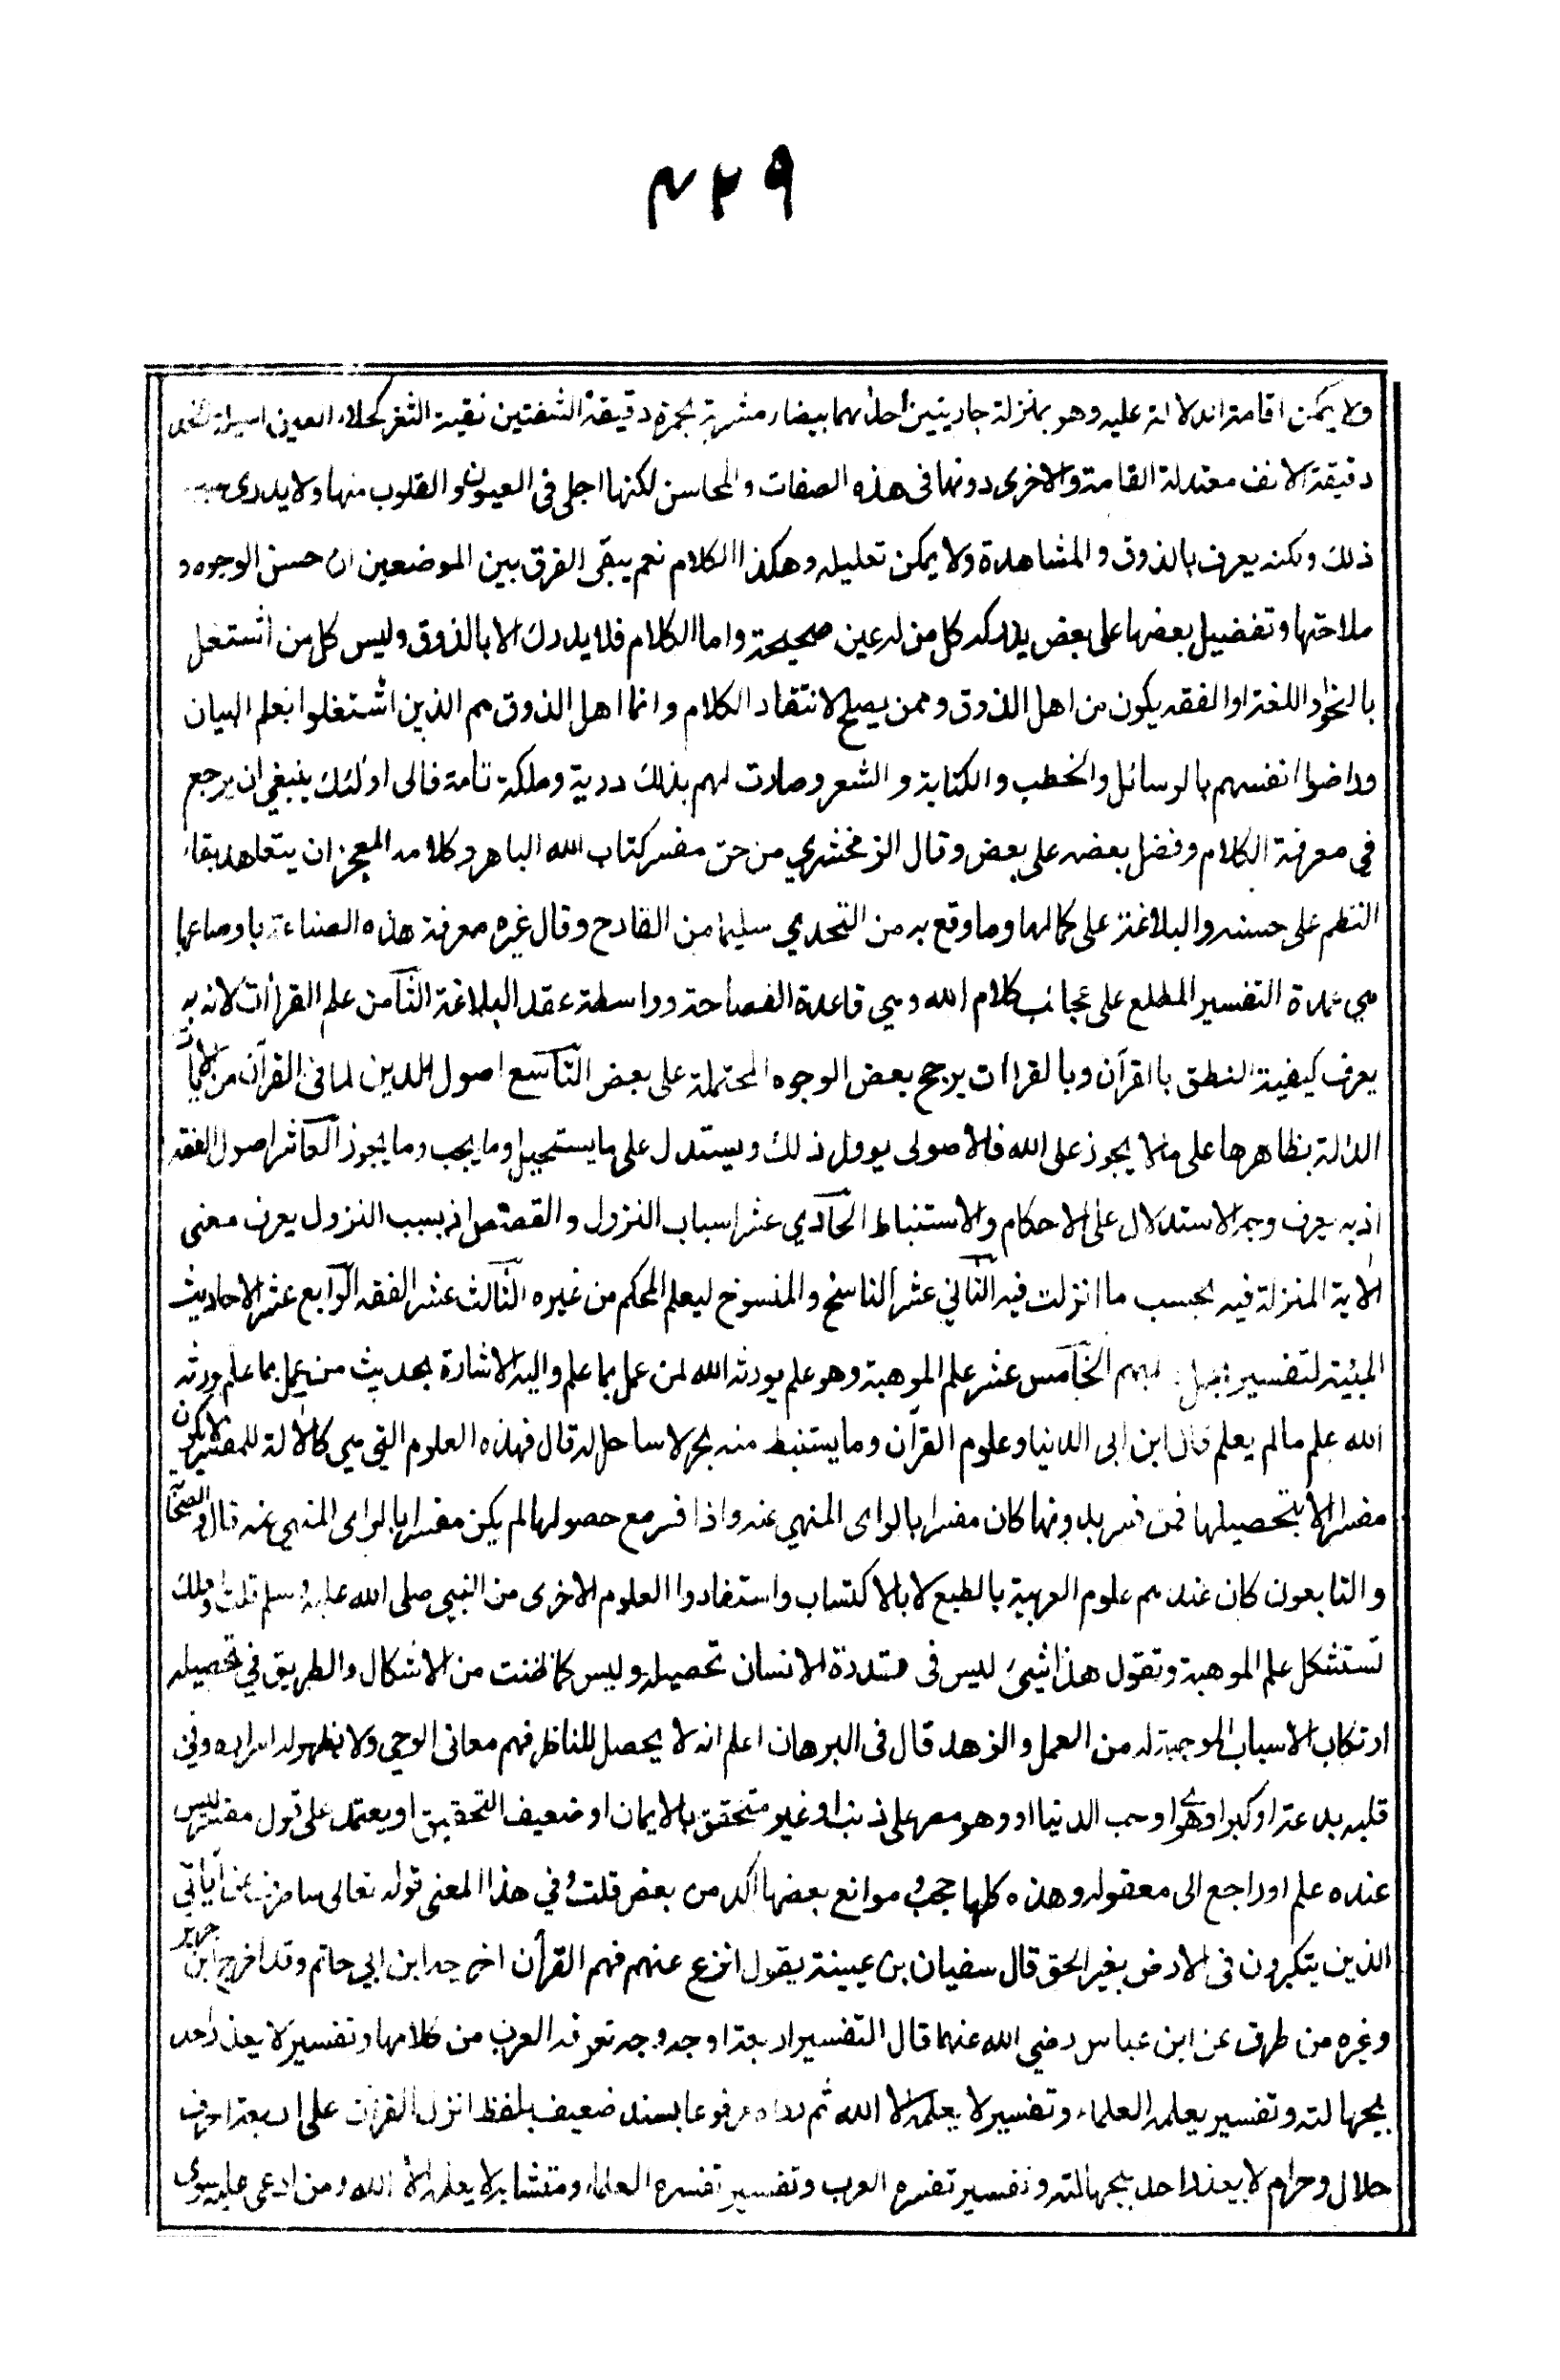 ٤٢٩
ولا يمكن اقامة الدلالة عليه وهو بمنزلة جاريتين احداهما بيضاء مشربة بحمرة دقيقة الشفتين نقية الثغر كحلاء العين اسيلة الخد
دقيقة الانف معتدلة القامة والاخرى دونها فى هذه الصفات والمحاسن لكنها احلى فى العيون والقلوب منها ولا يدرى سبب
ذلك ولكنه يعرف بالذوق والمشاهدة ولا يمكن تعليله وهكذا الكلام نعم يبقى الفرق بين الموضعين ان حسن الوجوه و
ملاحتها وتفضيل بعضها على بعض يدركه كل من له عين صحيحة واما الكلام فلا يدرك الا بالذوق وليس كل من اشتغل
بالنحو او اللغة او الفقه يكون من اهل الذوق وممن يصلح لانتقاد الكلام وانما اهل الذوق هم الذين اشتغلوا بعلم البيان
وراضوا انفسهم بالرسائل والخطب والكتابة والشعر وصارت لهم بذلك دربة وملكة تامة فالى اولئك ينبغى ان يرجع
في معرفة الكلام وفضل بعضه على بعض وقال الزمخشري من حق مفسر كتاب الله الباهر وكلامه المعجز ان يتعاهد بقاء
النظم على حسنه والبلاغة على كمالها وما وقع به من التحدي سليما من القادح وقال غيره معرفة هذه الصناعة باوضاعها
هي عمدة التفسير المطلع على عجائب كلام الله وهي قاعدة الفصاحة وواسطة عقد البلاغة الثامن علم القراات لانه به
يعرف كيفية النطق بالقرآن وبالقراات يرجح بعض الوجوه المحتملة على بعض التاسع اصول الدين لما فى القرآن من الايات
الدالة بظاهرها على ما لا يجوز على الله فالاصولى يوول ذلك ويستدل على ما يستحيل وما يجب وما يجوز العاشر اصول الفقه
اذ به يعرف وجه الاستدلال على الاحكام والاستنباط الحادي عشر اسباب النزول والقصص اذ بسبب النزول يعرف معنى
الاية المنزلة فيه بحسب ما انزلت فيه الثاني عشر الناسخ والمنسوخ ليعلم المحكم من غيره الثالث عشر الفقه الرابع عشر الاحاديث
المبينة لتفسير المجمل والمبهم الخامس عشر علم الموهبة وهو علم يورثه الله لمن عمل بما علم واليه الاشارة بحديث من عمل بما علم ورثه
الله علم مالم يعلم قال ابن ابى الدنيا وعلوم القرآن وما يستنبط منه بحر لا ساحل له قال فهذه العلوم التي هي كالآلة للمفسر لا يكون
مفسرا الا بتحصيلها فمن فسر بدونها كان مفسرا بالراى المنهي عنه واذا فسر مع حصولها لم يكن مفسرا بالراى المنهي عنه قال والصحابة
والتابعون كان عندهم علوم العربية بالطبع لا بالاكتساب واستفادوا العلوم الاخرى من النبي صلى الله عليه وسلم قلت ولعلك
تستشكل علم الموهبة وتقول هذا شيئ ليس فى قدرة الانسان تحصيله وليس كما ظننت من الاشكال والطريق في تحصيله
ارتكاب الاسباب الموجبة له من العمل والزهد قال فى البرهان اعلم انه لا يحصل للناظر فهم معانى الوحي ولا يظهر له اسراره وفي
قلبه بدعة او كبر او هوى او حب الدنيا او وهو مصر على ذنب او غير متحقق بالايمان او ضعيف التحقيق او يعتمد على قول مفسر ليس
عنده علم او راجع الى معقوله وهذه كلها حجب وموانع بعضها اكد من بعض قلت وفي هذا المعنى قوله تعالى ساصرف عن آياتي
الذين يتكبرون فى الارض بغير الحق قال سفيان بن عيينة يقول انزع عنهم فهم القرآن اخرجه ابن ابي حاتم وقد اخرج ابن جرير
وغيره من طرق عن ابن عباس رضي الله عنهما قال التفسير اربعة اوجه وجه تعرفه العرب من كلامها وتفسير لا يعذر احد
بجهالته وتفسير يعلمه العلماء وتفسير لا يعلمه الا الله ثم رواه مرفوعا بسند ضعيف بلفظ انزل القرآن على اربعة احرف
حلال وحرام لا يعذر احد بجهالته وتفسير تفسره العرب وتفسير تفسره العلماء ومتشابه لا يعلمه الا الله ومن ادعى علمه سوى